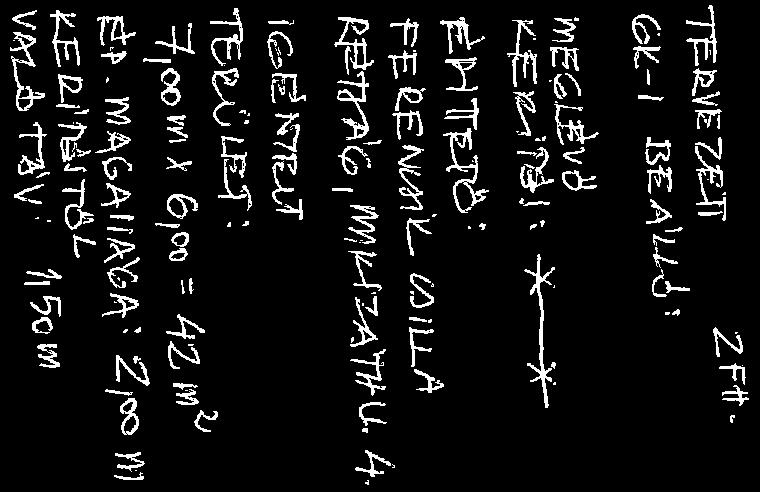 TERVEZETT 2 FH.
GK-1 BEÁLLÓ:
MEGLÉVŐ
KERÍTÉS:
ÉPÍTTETŐ:
CSILLA
RÉTSÁG, MIKSZÁTH U. 4.
IGÉNYELT
TERÜLET:
7,00 m x 6,00 = 42 m²
ÉP. MAGASSÁGA: 2,00 m
KERÍTÉSTŐL
VALÓ TÁV: 1,50 m